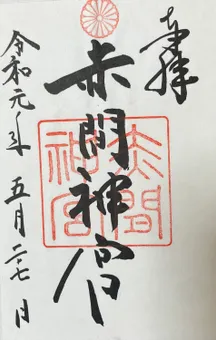 奉拝
赤間神宮
赤間
神宮
令和元年五月二七日